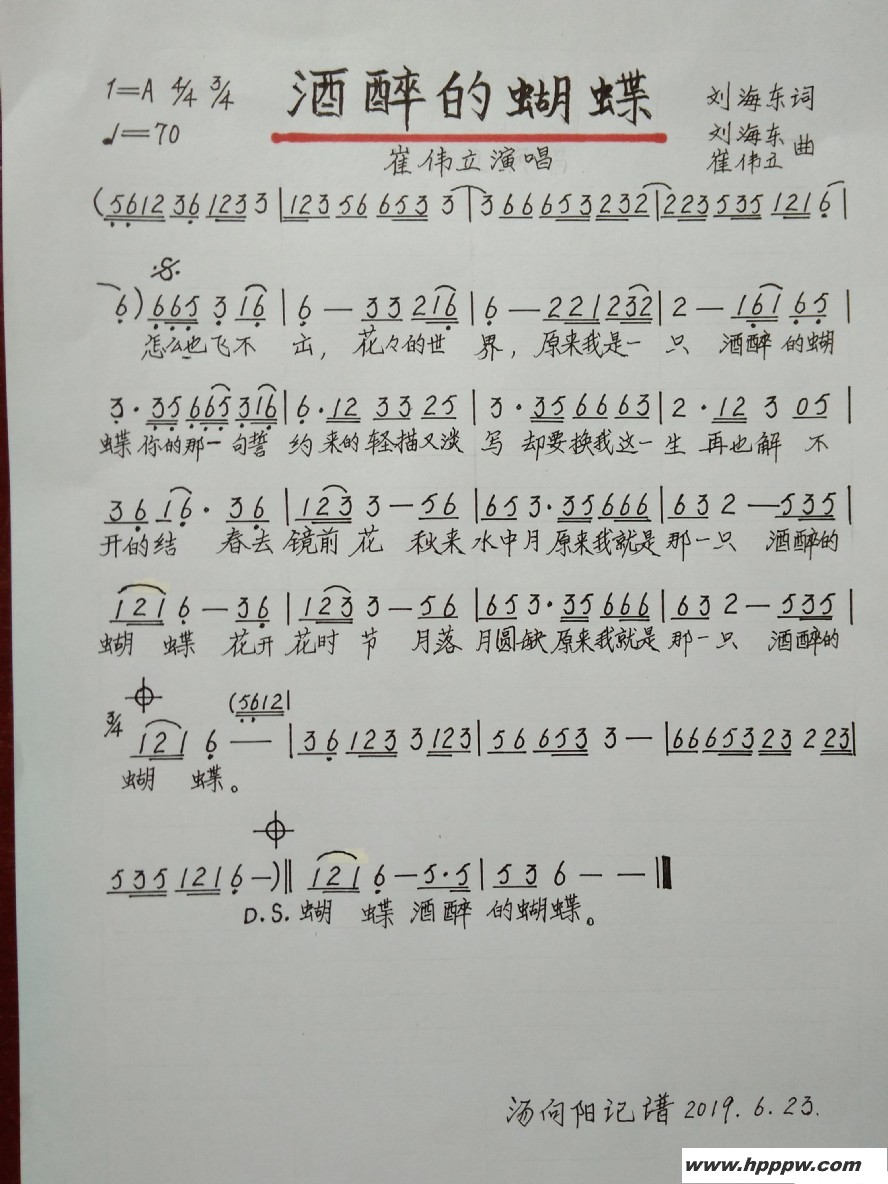 1=A 4/4 3/4 酒醉的蝴蝶 刘海东词
♩=70 刘海东 崔伟立 曲
崔伟立演唱
(5612 36 1233 3 | 123 56 653 3 | 3 666532 32 | 223535 121 6 |
6) 665 3 16 | 6 — 33 216 | 6 — 221232 | 2 — 161 65 |
怎么也飞不 出, 花々的世 界, 原来我是一 只 酒醉的蝴
3 · 35 665 316 | 6 · 12 33 25 | 3 · 35 6663 | 2 · 12 3 05 |
蝶你的那一句誓 约来的轻描又淡 写 却要换我这一生 再也解 不
36 16 · 36 | 123 3 — 56 | 653 · 35666 | 632 — 535 |
开的结 春去 镜前 花 秋来 水中月 原来我就是 那一只 酒醉的
121 6 — 36 | 123 3 — 56 | 653 · 35 666 | 632 — 535 |
蝴 蝶 花开 花时 节 月落 月圆缺原来我就是 那一只 酒醉的
(5612 |
3/4 121 6 — | 36 123 3 123 | 56 653 3 — | 66653 23 2 23 |
蝴 蝶。
535 121 6 —) || 121 6 — 5 · 5 | 5 3 6 — — ||
D.S. 蝴 蝶 酒醉 的蝴蝶。
汤向阳记谱 2019. 6. 23.
www.hpppw.com